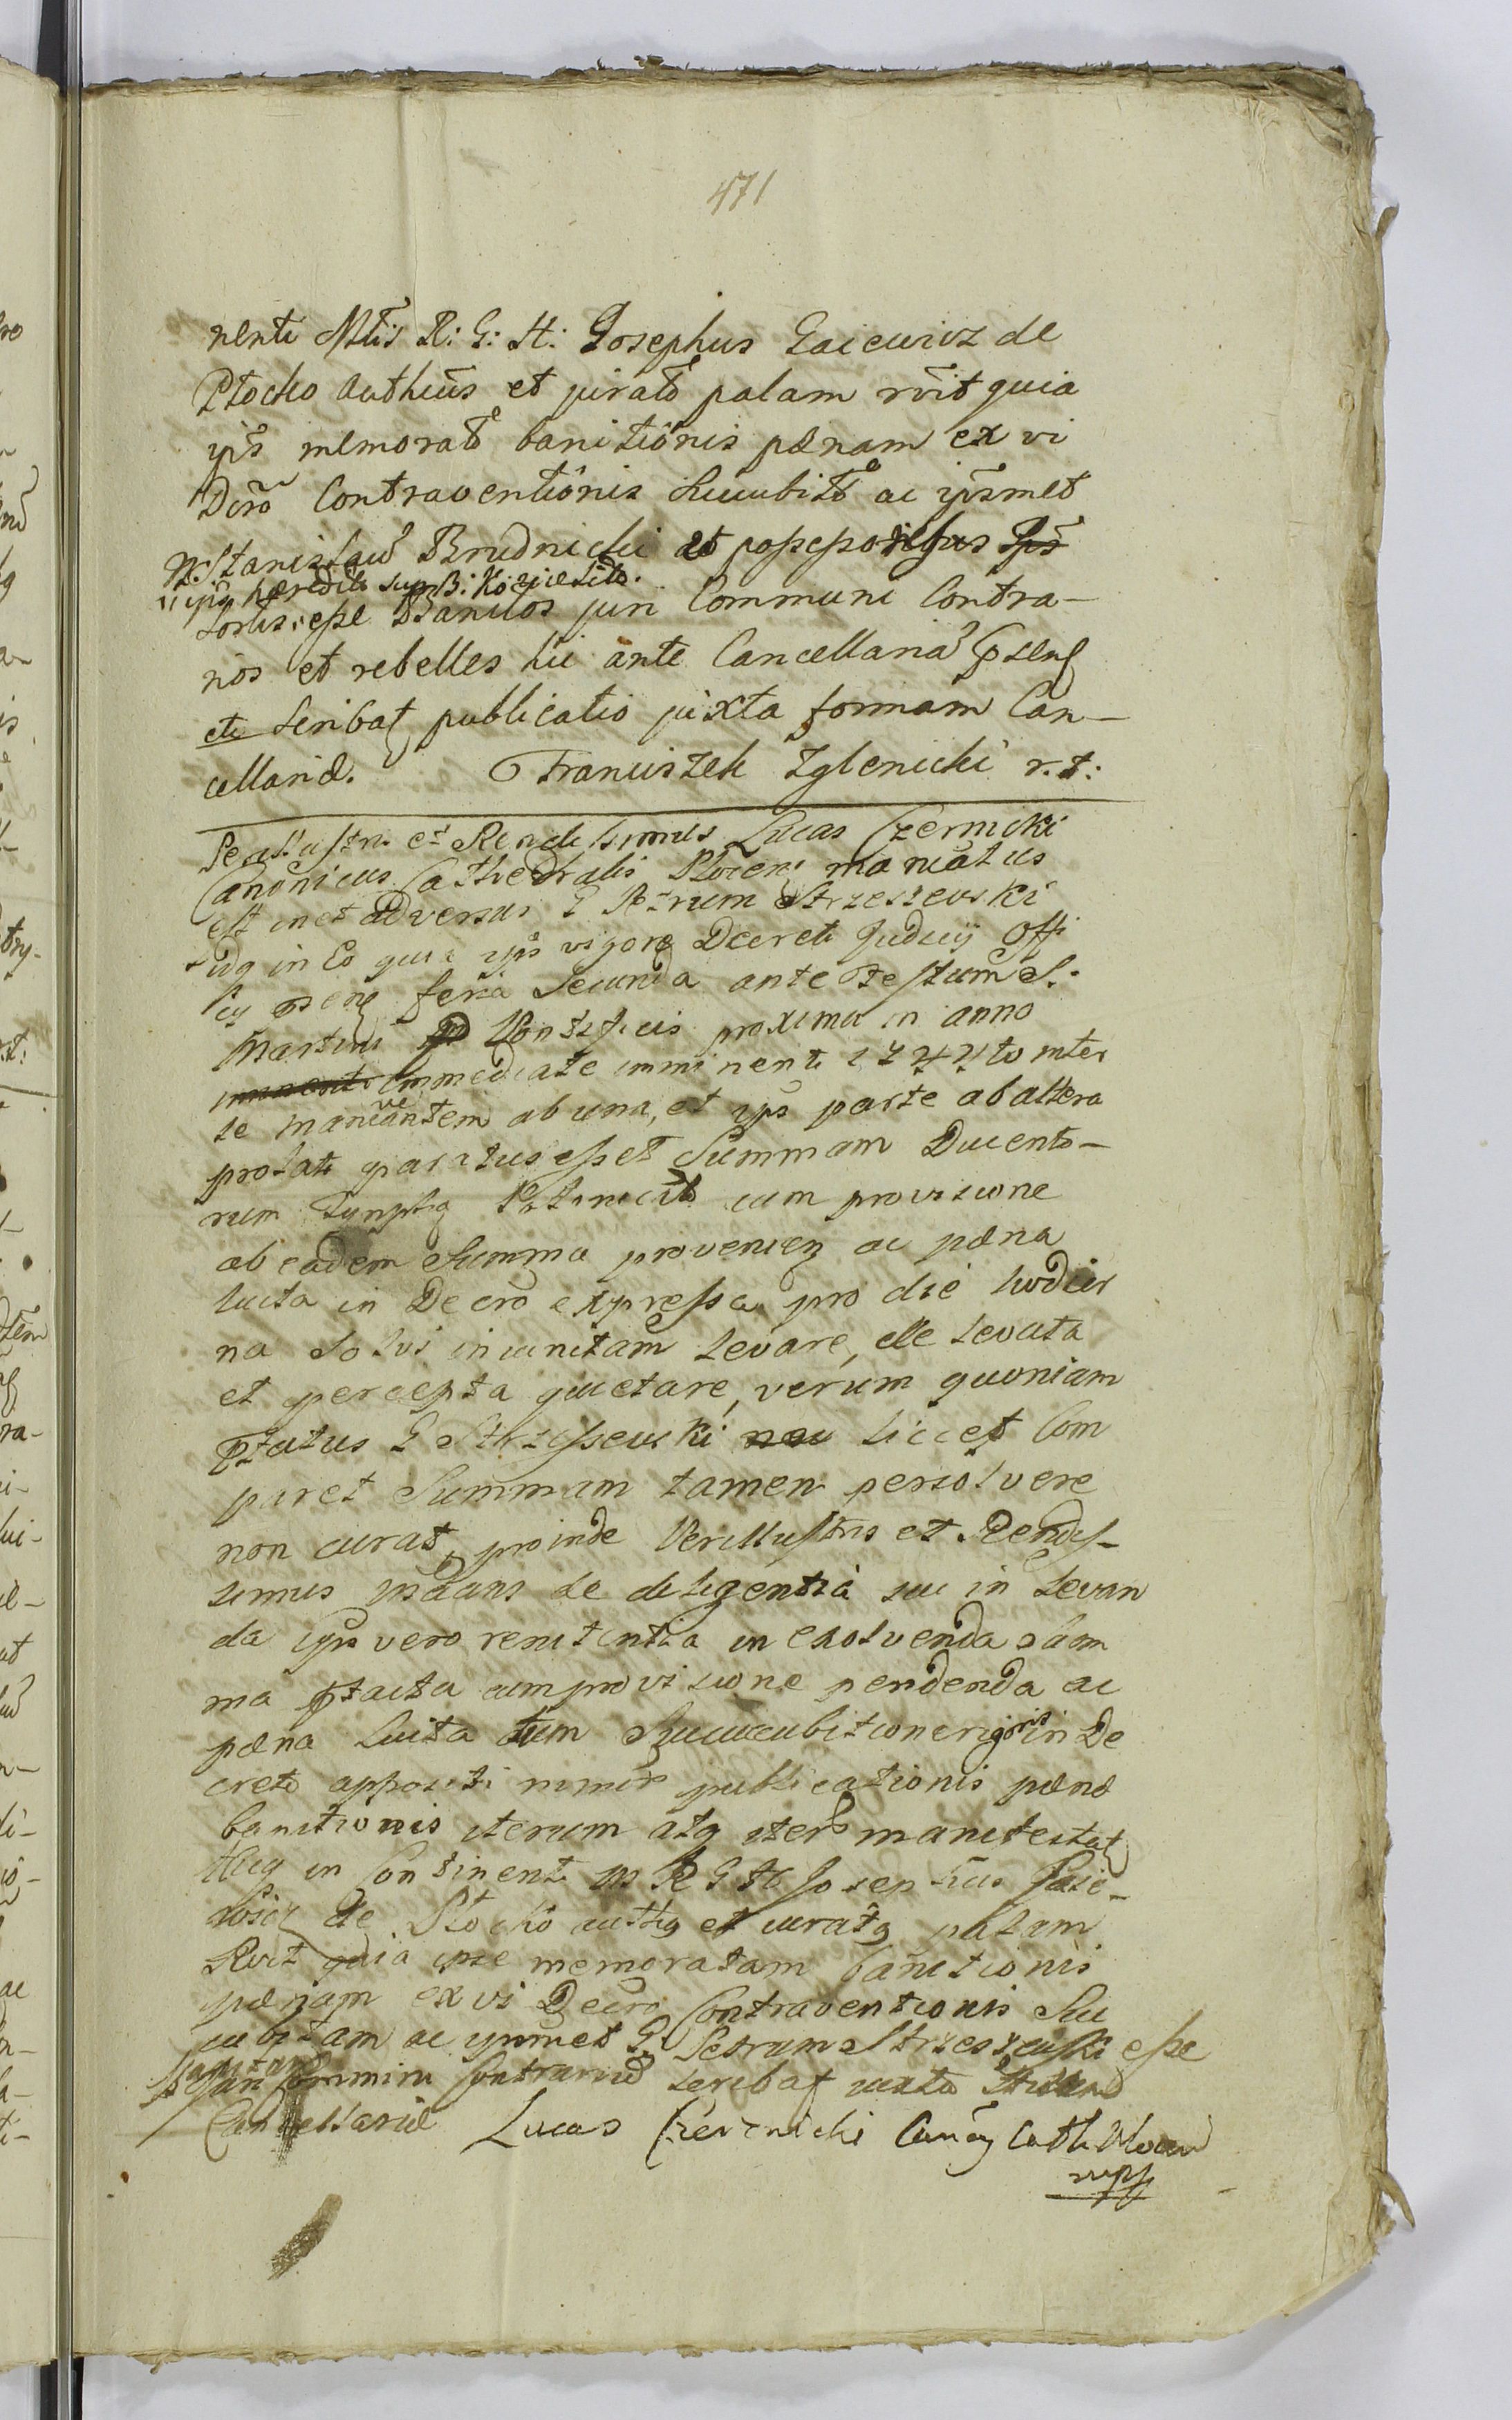 471
nenti Mtis R: G: H: Josephus Gaiewicz de
Plocko authus et jurato palam rvit quia
ips memorat banitionis pænam ex vi
Decro Contraventionis Succubit ac ipsmet
N: Stanislaw Brudnicki et possessoribus
ipsq hæredit sup B: Koziesite.
sortis esse Banitos juri Communi Contra-
rios et rebelles hic ante Cancellariã psens
Scribat publicatio juxta formam Can-
cellariæ. Franciszek Zglenicki r.t:
Perillustris et Rendissimus Lucas Czernicki
Canonicus Cathedralis Plocen maniatus
est in et adversus G Petrum Strzeszewski
idq in Eo quia ips vigore Decreti Judicij Offi
cij psens feria Secunda ante Festum S:
Martini Pontificis proxima in anno
immediate imminenti 1744to inter
se manivantem ab una, et ips parte ab altera
prolati paratus esset Summam Ducento-
rum Tynphq cum provisione
ab eadem Summa provenien ac pæna
lucta in Decro expressa pro die hodier
na Solvi incunitam levare, de levata
et percepta quietare, verum quoniam
ptatus G Strzessewski licet Com
paret Summam tamen persolvere
non curat, proinde Perillustris et Rendis-
simus de diligentia sui in levan
da ips vero renitentia in exolvenda Sum
ma ptacta cum provisione pendenda ac
pæna lucta tum Succubitione rigoris in De
creto appositi nimir publicationis pænæ
banitionis iterum atq iter manitestat
Ubiq in Continenti M R G H Josephus Gaie-
wicz de Plocko authq et juratq palam
Rvit quia ipse memoratam banitionis
pænam ex vi Decro Contraventionis Suc
cubitam ac ipsmet G. Petrum Strzeszewski esse
Communi Contrarium Scribat iuxta
Cancellariæ Lucas Czernicki Canoq Cath Plocen
mpp